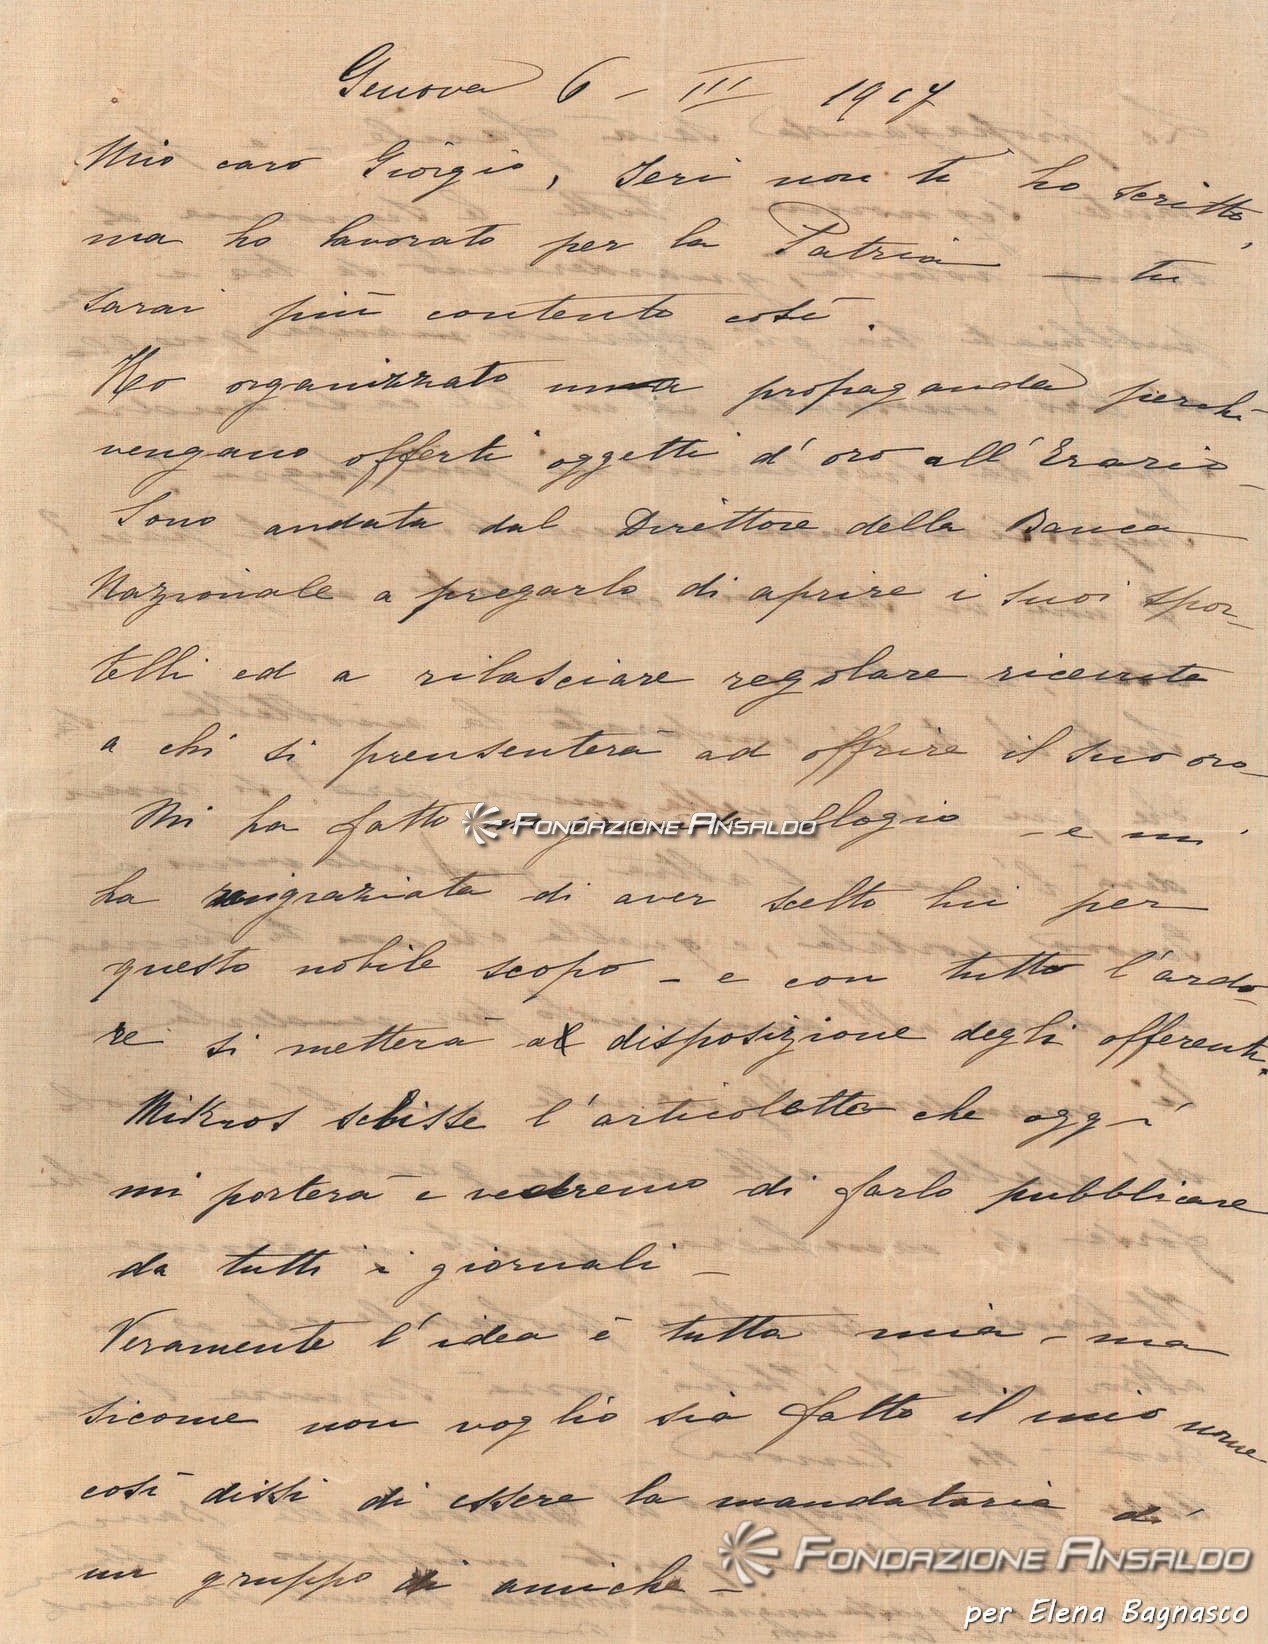 Genova 6 - III 1917
Mio caro Giorgio, Ieri non ti ho scritto,
ma ho lavorato per la Patria — tu
sarai più contento così.
Ho organizzato una propaganda perchè
vengano offerti oggetti d'oro all'Erario —
Sono andata dal Direttore della Banca
Nazionale a pregarlo di aprire i suoi spor-
telli ed a rilasciare regolare ricevute
a chi si prensenterà ad offrire il suo oro -
Mi ha fatto elogio - e mi
ha ringraziata di aver scelto lui per
questo nobile scopo - e con tutto l'ardo-
re si metterà a disposizione degli offerenti.
Mikros scrisse l'articoletto che oggi
mi porterà e vedremo di farlo pubblicare
da tutti i giornali -
Veramente l'idea è tutta mia - ma
sicome non voglio sia fatto il mio nome
così dissi di essere la mandataria di
un gruppo di amiche -
FONDAZIONE ANSALDO
FONDAZIONE ANSALDO
per Elena Bagnasco